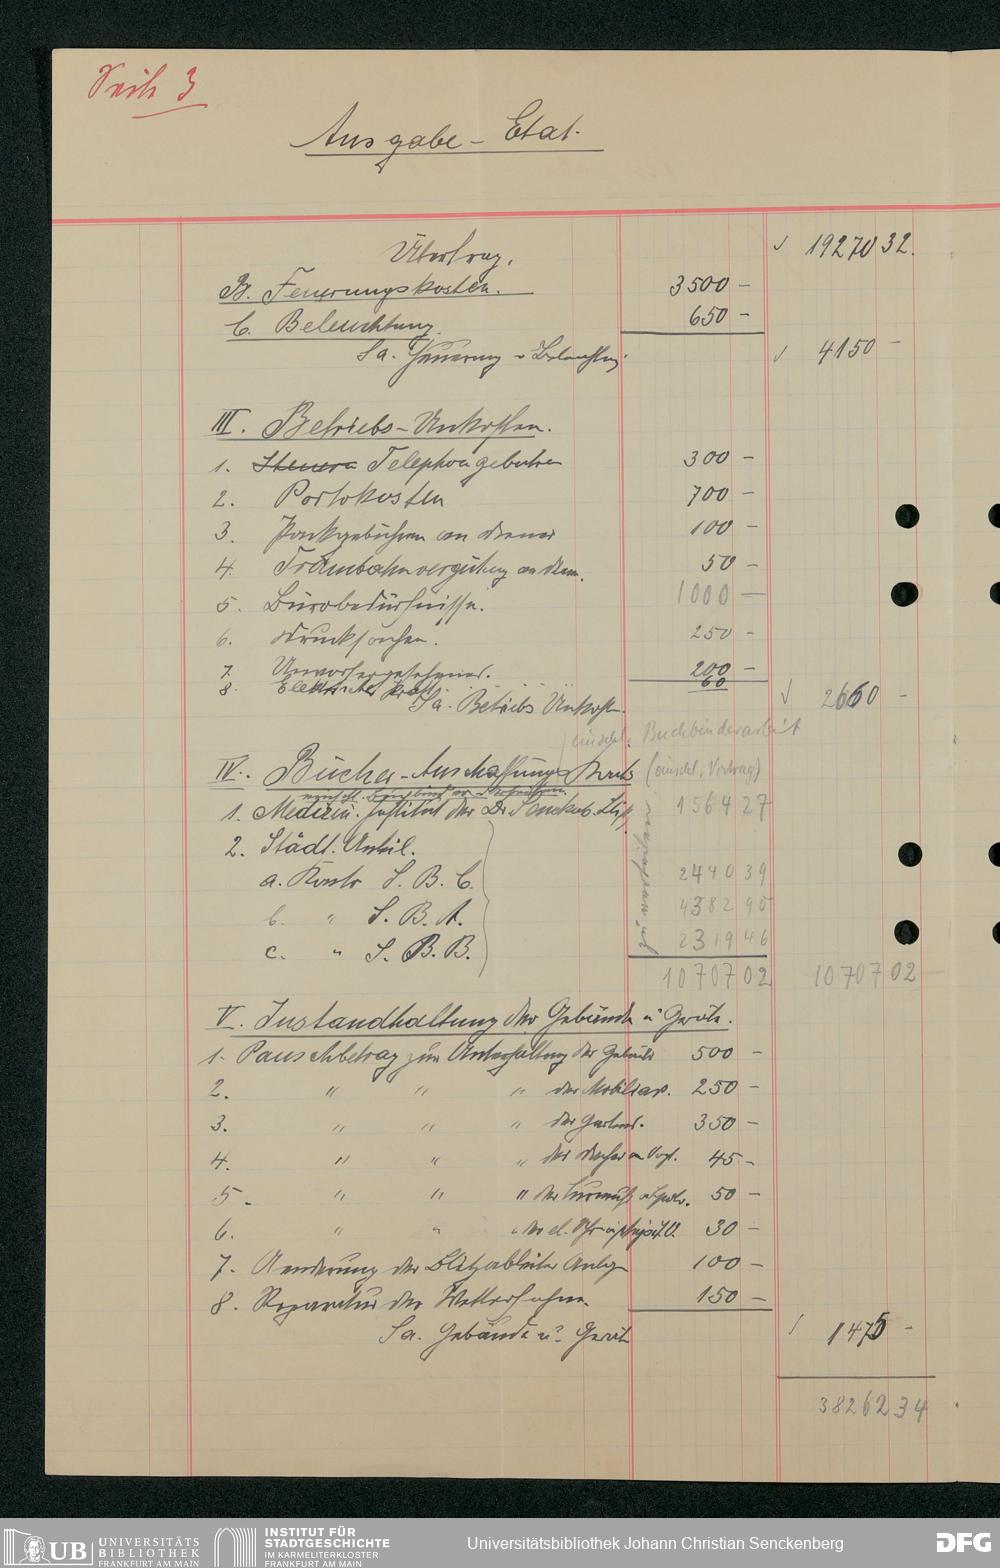 Seite 3
Ausgabe-Etat.
Übertrag. √ 19270 32.
B. Feuerungskosten. 3500 -
C. Beleuchtung. 650 -
Sa. Feuerung u Beleuchtung. √ 4150 -
III. Betriebs-Unkosten.
1. Steuern Telephongebühren 300 -
2. Portokosten 700 -
3. gebühren an Diener 100 -
4. Trambahnvergütung an Diener. 50 -
5. Bürobedürfnisse. 1000 -
6. Drucksachen. 250 -
7. Unvorhergesehenes. 200 -
8. Elektrische Kraft 60
Sa. Betriebs Unkosten. √ 2660 -
einschl. Buchbinderarbeit
IV. Bücher-Anschaffungs Konto (einschl. Vortrag)
1. Medizin. Institut der Dr. Senckenb. Stift. 1564 27
2. Städt. Anteil.
zu verteilen
a. Konto S. B. C. 2440 39
b. " S. B. A. 4382 90
c. " S. B. B. 2319 46
10707 02 10707 02
V. Instandhaltung der Gebäude u. Geräte.
1. Pauschbetrag zur Unterhaltung der Gebäude 500 -
2. " " " des Mobiliars. 250 -
3. " " " des Gartens. 350 -
4. " " " der 45 -
5. " " " der 50 -
6. " " " der el. 30 -
7. Aenderung der Blitzableiter Anlage 100 -
8. Reparatur der Wetterfahne. 150 -
Sa. Gebäude u. Geräte √ 1475 -
38262 34
UB UNIVERSITÄTS
BIBLIOTHEK
FRANKFURT AM MAIN
INSTITUT FÜR
STADTGESCHICHTE
IM KARMELITERKLOSTER
FRANKFURT AM MAIN
Universitätsbibliothek Johann Christian Senckenberg
DFG